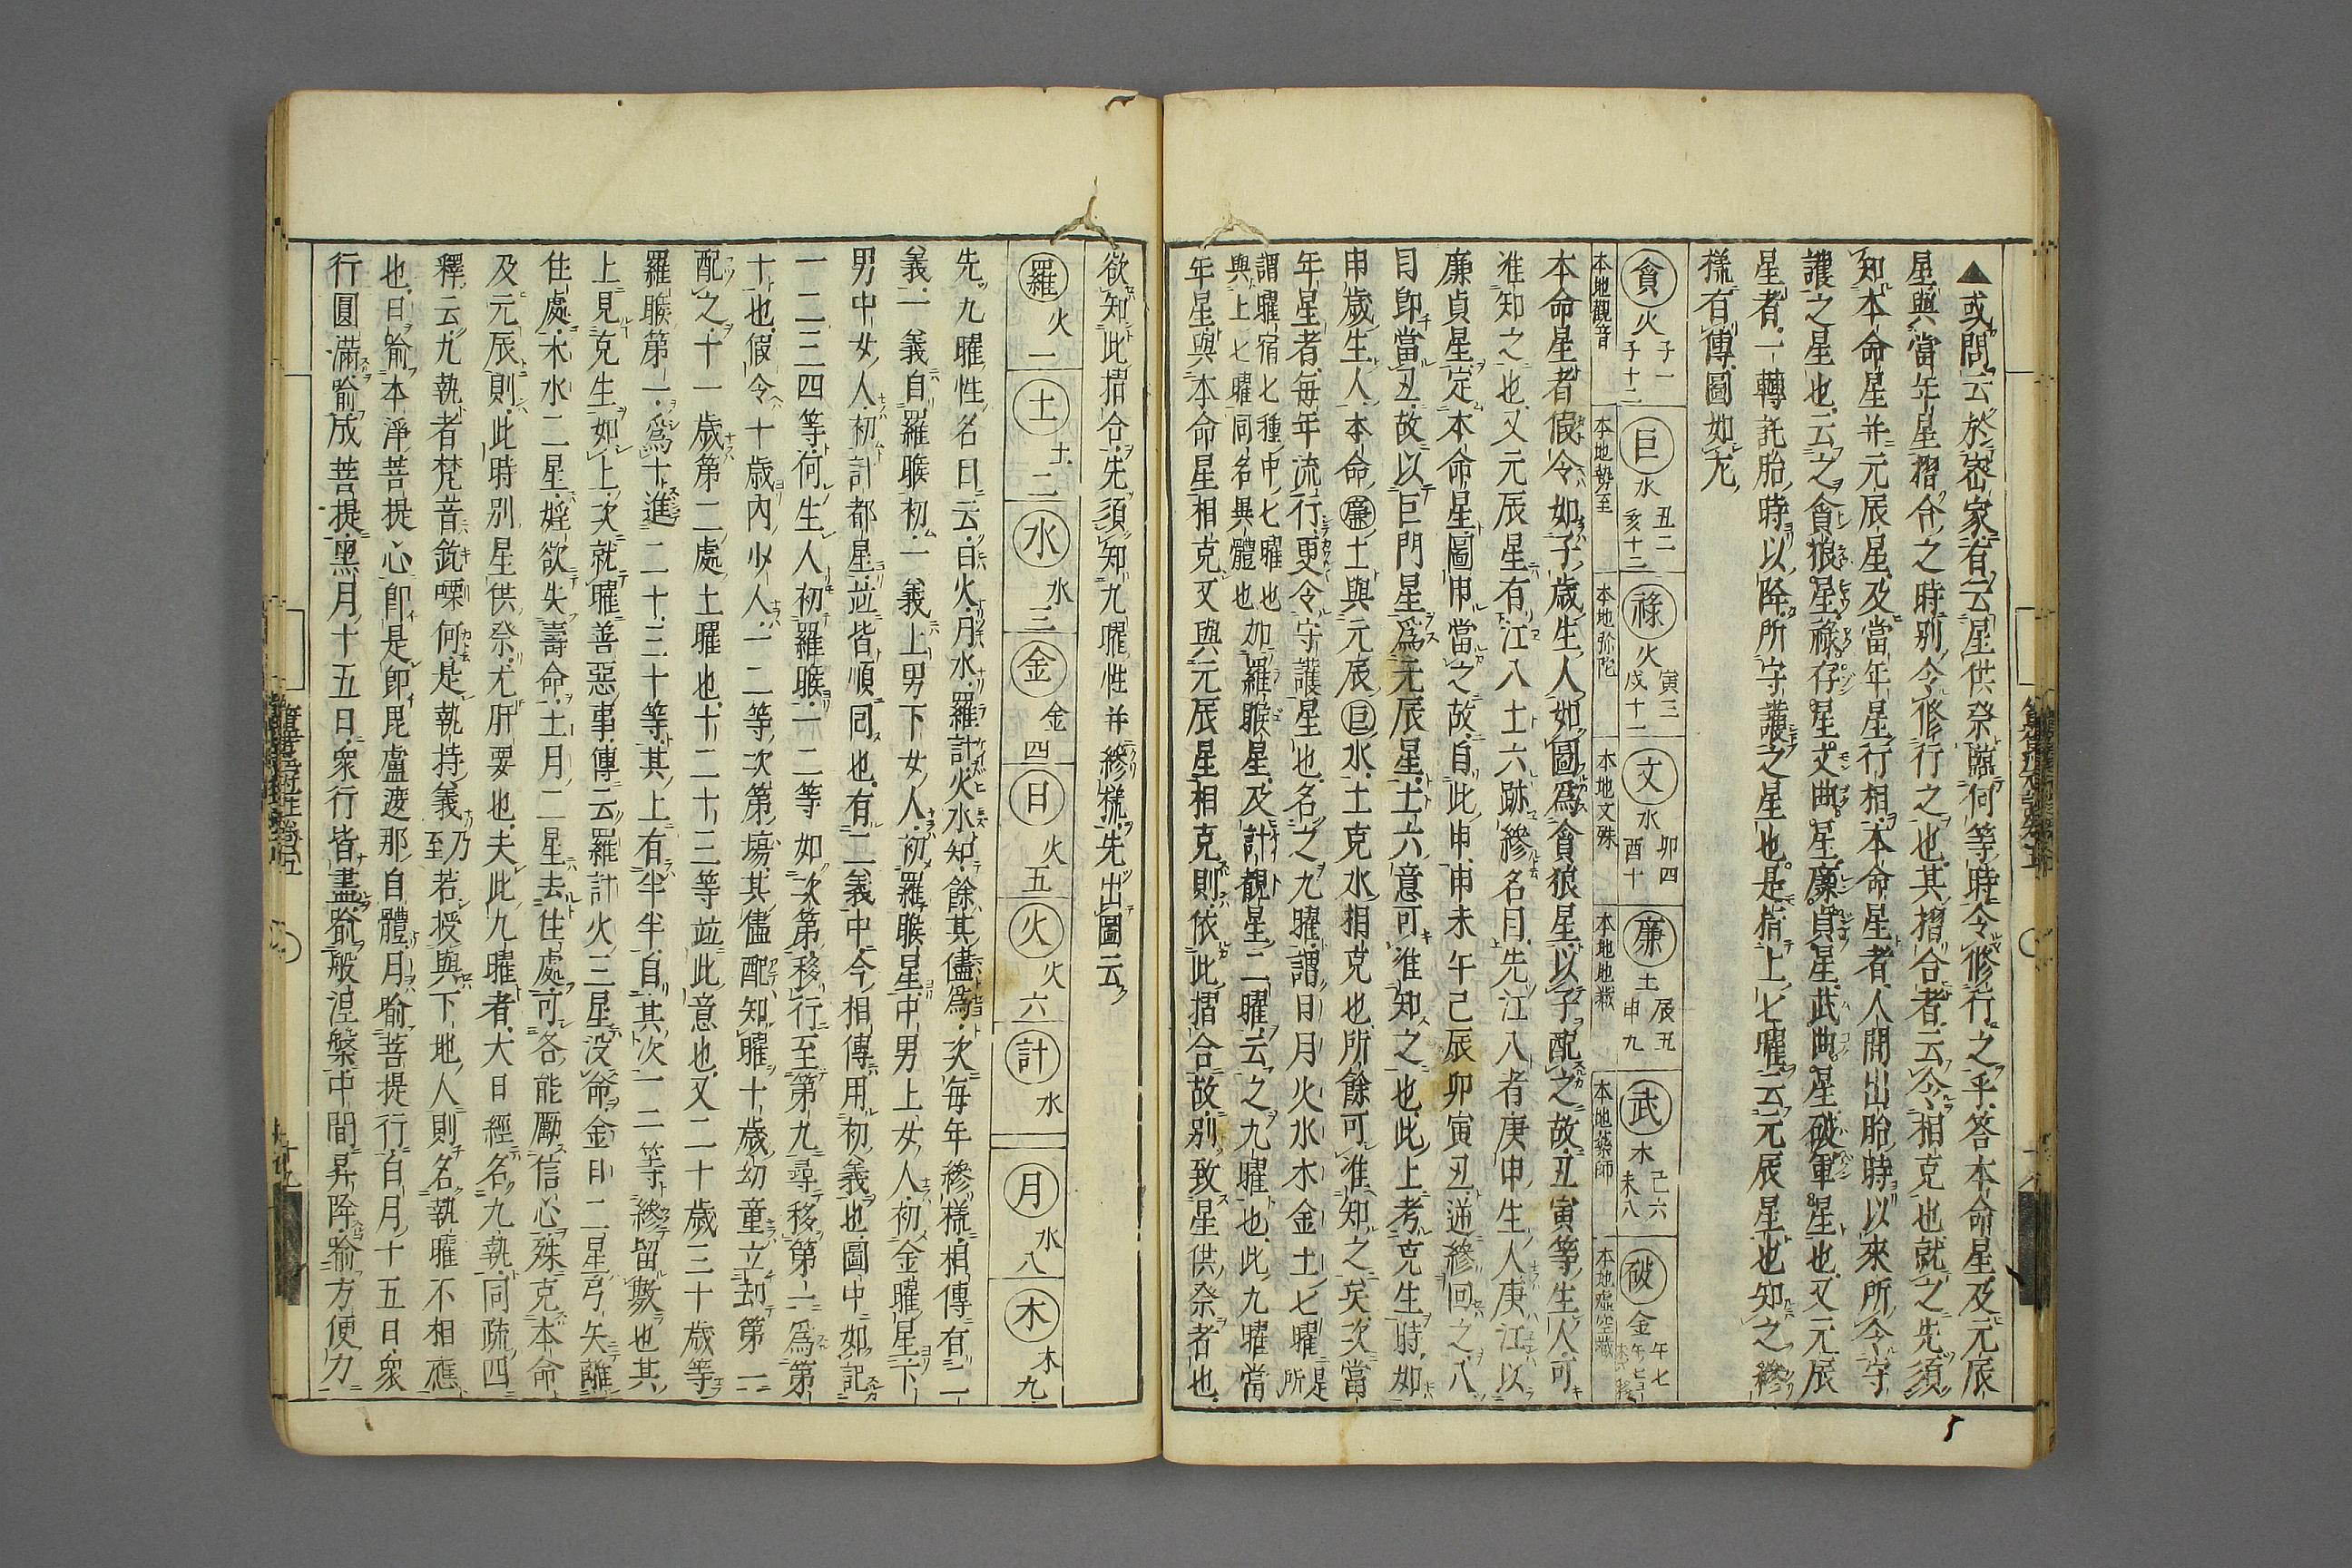 ▲或問云於密家有云星供祭臨何等時令修行之乎答本命星及元辰
星與當年星摺合之時別令修行之也其摺合者云令相克也就之先須
知本命星并元辰星及當年星行相本命星者人間出胎時以來所令守
護之星也云之貪狼星祿存星文曲星廉貞星武曲星破軍星也又元辰
星者一轉託胎時以降所守護之星也是指上七曜云元辰星也知之
樣有傳圖如左
貪 火 子一 子十二 本地觀音
巨 水 丑二 亥十二 本地勢至
祿 火 寅三 戌十一 本地弥陀
文 水 卯四 酉十 本地文殊
廉 土 辰五 申九 本地地藏
武 木 己六 未八 本地藥師
破 金 午七 本地虛空藏
本命星者假令如子歲生人如圖爲貪狼星以子配之故丑寅等生人可
准知之也又元辰星有江八土六跡縿名目先江八者庚申生人庚江以
廉貞星定本命星圖申當之故自此申申未午己辰卯寅丑逆縿回之八
目即當丑故以巨門星爲元辰星土六意可准知之也此上考克生時如
申歲生人本命廉土與元辰巨水土克水相克也所餘可准知之矣次當
年星者每年流行更令守護星也名之九曜謂日月火水木金土七曜所是
謂曜宿七種中七曜也
與上七曜同名異體也
加羅睺星及計覩星二曜云之九曜也此九曜當
年星與本命星相克又與元辰星相克則依此摺合故別致星供祭者也
欲知此摺合先須知九曜性并縿樣先出圖云
羅 火 一
土 土 二
水 水 三
金 金 四
日 火 五
火 火 六
計 水
月 水 八
木 木 九
先九曜性名目云日火月水羅計火水知餘其儘爲次每年縿樣相傳有二
義一義自羅睺初一義上男下女人初羅睺星中男上女人初金曜星下
男中女人初計都星並皆順回也有二義中今相傳用初義也圖中如記
一二三四等何生人初羅睺一二等如次第移行至第九尋移第二爲第
十也假令十歲內少人一二等次第場其儘配知曜十歲幼童立刧第一
配之十一歲第二處土曜也十二十三等並此意也又二十歲三十歲等
羅睺第一爲十進二十三十等其上有半半自其次一二等縿留數也其
上見克生如上次就曜善惡事傳云羅計火三星没命金日二星弓矢離
住處木水二星婬欲失壽命土月二星去住處可各能勵信心殊克本命
及元辰則此時別星供祭尤肝要也夫此九曜者大日經名九執同疏四
釋云九執者梵音㘑何是執持義乃至若授與下地人則名執曜不相應
也日喻本淨菩提心即是即毘盧遮那自體月喻菩提行白月十五日衆
行圓滿喻成菩提黑月十五日衆行皆盡喻般涅槃中間昇降喻方便力